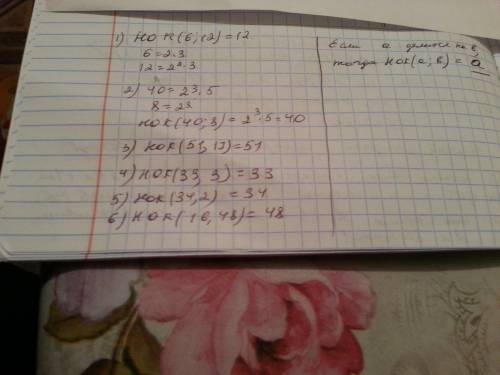 1) НОК(6,12)=12
6=2·3
12=2²·3
2) 40=2³·5
8=2³
НОК(40;8)=2³·5=40
3) НОК(51,17)=51
4) НОК(33, 3)=33
5) НОК(34,2) =34
6) НОК(16,48)=48
Если а делится на в,
тогда НОК(а; в) = а